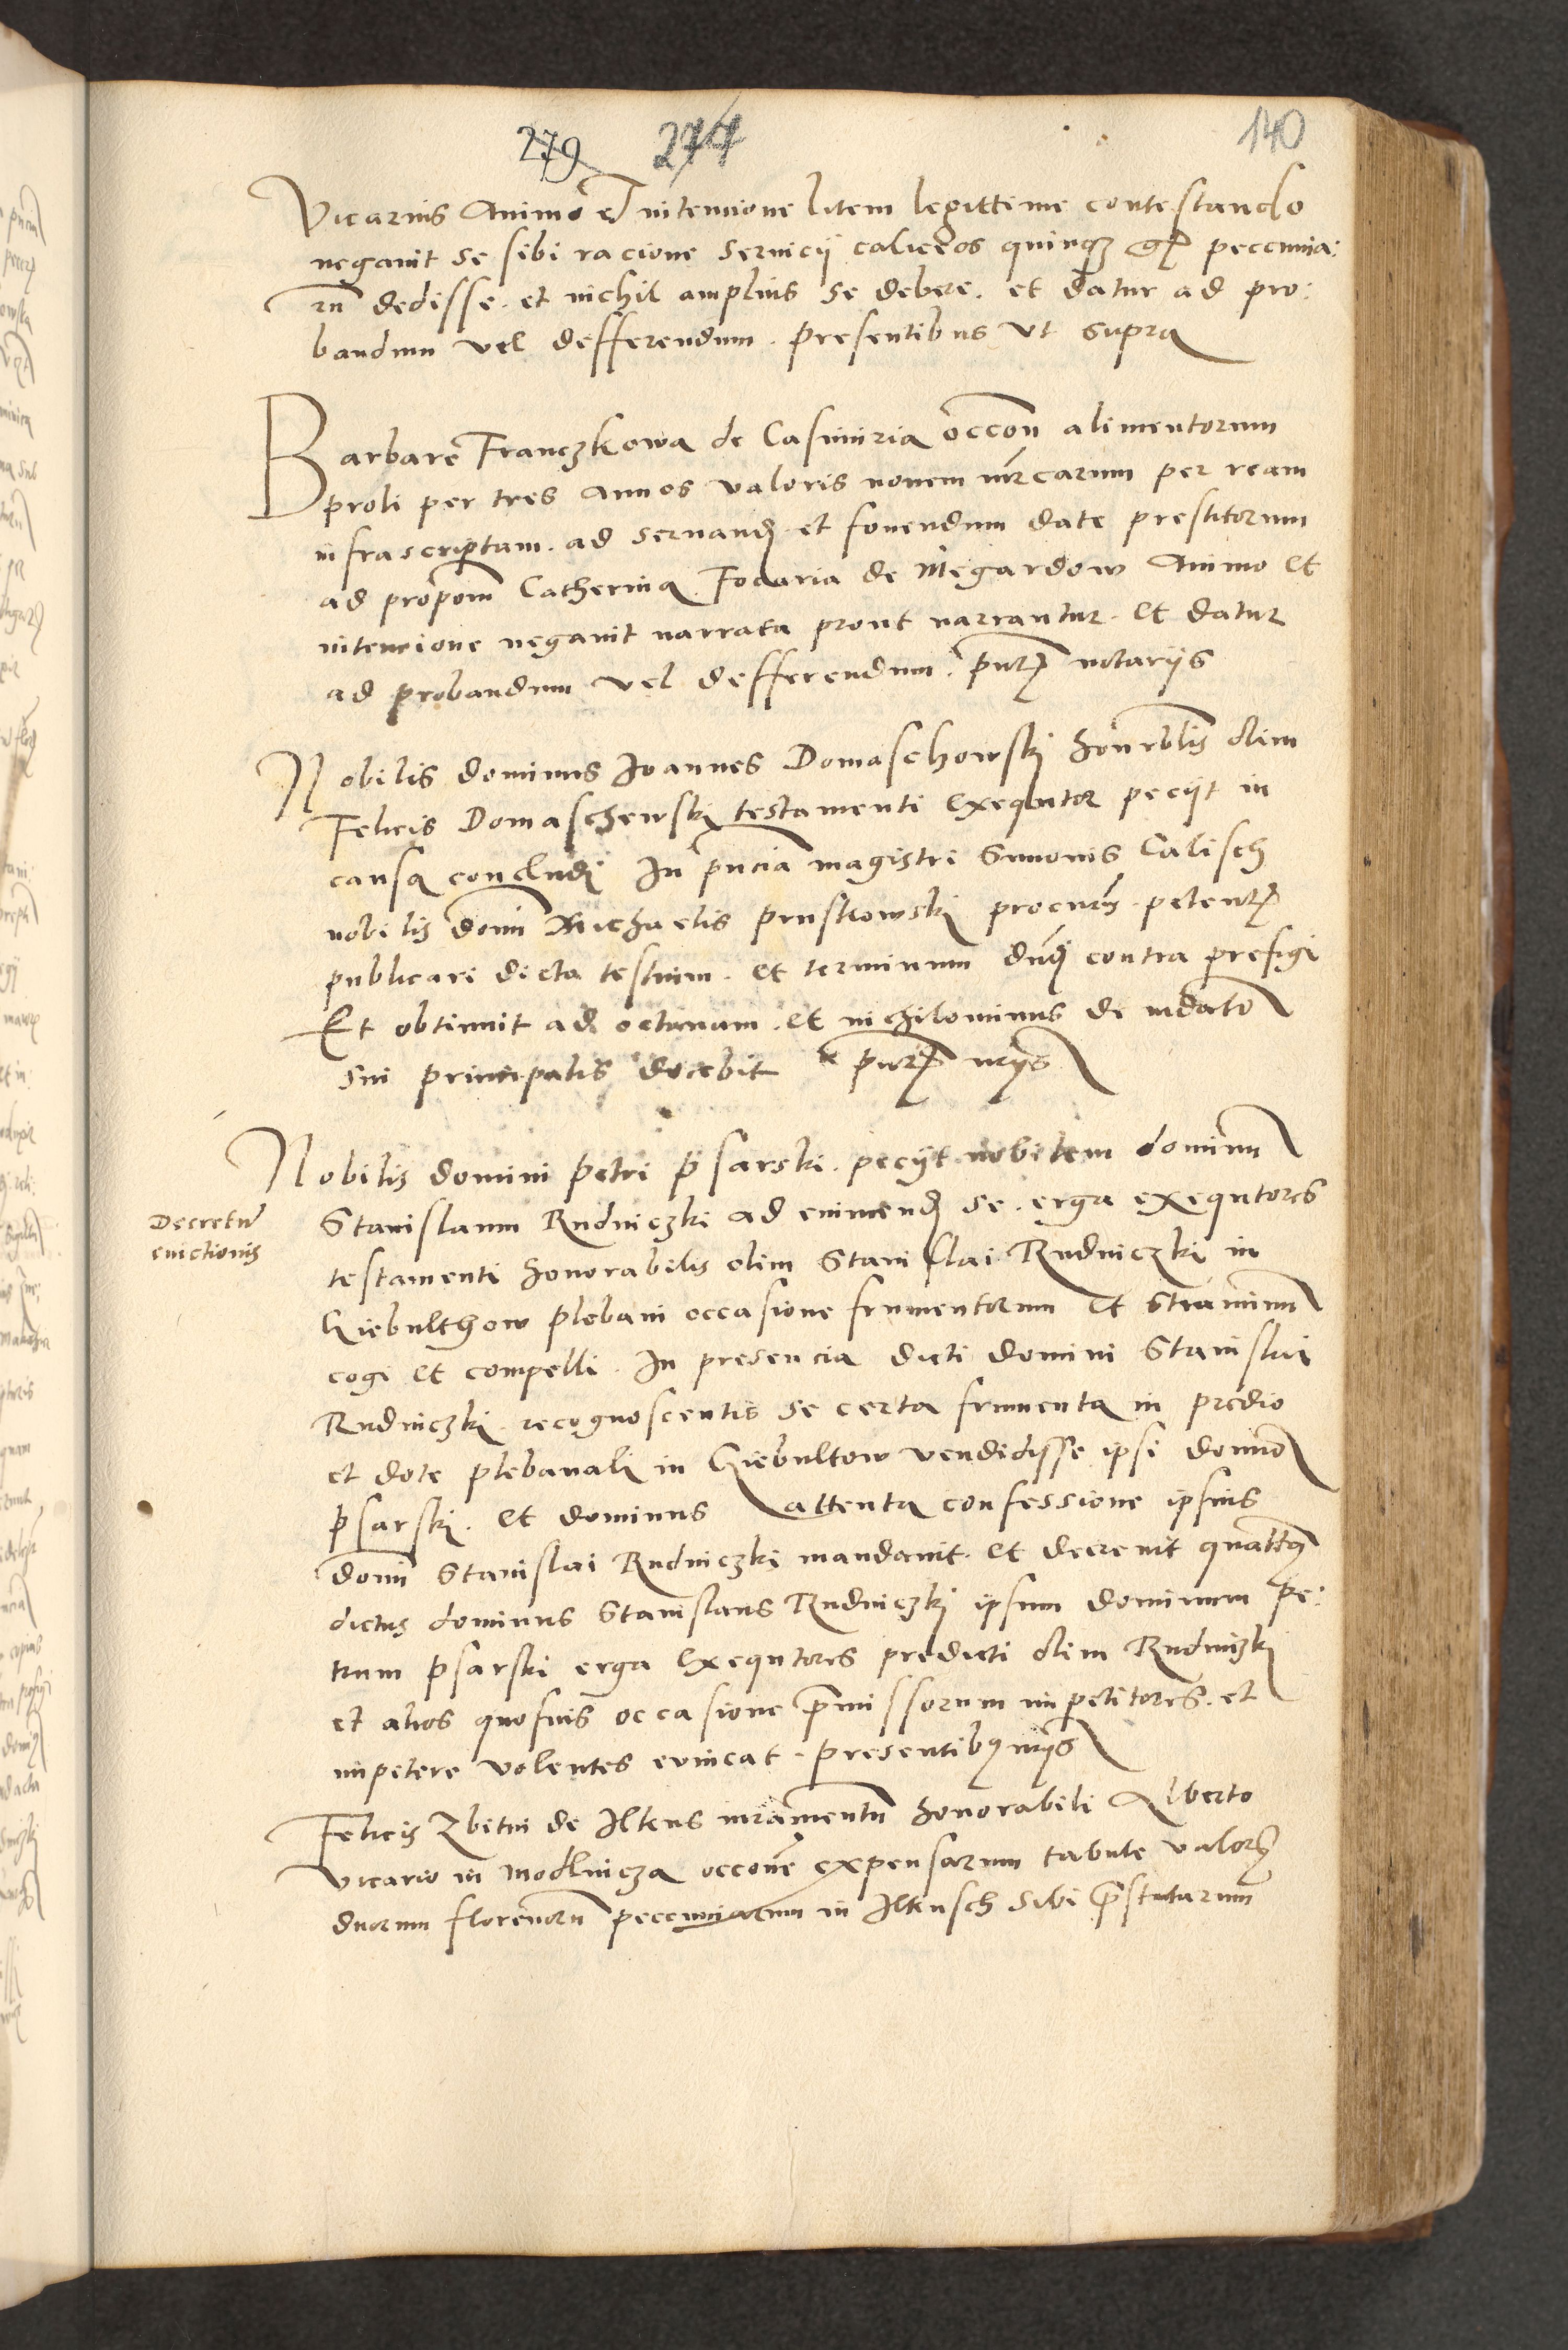 279 277 140
Vicarius Animo et intencione litem legittime contestando
negavit se sibi racione servicii caliceos quinq gr peccunia:
ru dedisse. et nichil amplius se debere. et datur ad pro:
bandum vel defferendum. presentibus Vt supra
Barbare Franczkowa de Casimiria occon alimentorum
proli per tres Annos valoris novem mrcarum per ream
infrascriptam. ad servand et fovendum date prestitorum
ad propom Catherina Focaria de Megardow Animo et
intencione negavit narrata prout narrantur. et datur
ad probandum vel defferendum. pntz notariis
Nobilis dominus Joannes Domaschowski honrblis olim
Felicis Domaschewski testamenti exequtor peciit in
causa concludi In pncia magistri Simonis Calisch
nobilis domi Michaelis Pruskowski procur petentz
publicari dicta testium. et terminum dnd contra prefigi
Et obtinuit ad octavam. et nichilominus de mdato
sui principalis docebit pntz nriis
Nobilis domini Petri Psarski. peciit nobilem dominu
Stanislaum Rudniczki ad evincend se. erga exequtores
Decretu
evictionis
testamenti honorabilis olim Stanislai Rudniczki in
Giebulthow plebani occasione frumentorum et straminu
cogi et compelli. In presencia dicti domini Stanislai
Rudniczki. recognoscentis se certa frumenta in predio
et dote plebanali in Giebultow vendidisse ipsi domino
Psarski. et dominus attenta confessione ipsius
domi Stanislai Rudniczki mandavit. et decrevit quatts
dictus dominus Stanislaus Rudniczki ipsum dominum Pe:
trum Psarski erga exequtores predicti olim Rudniczki
et alios quosvis occasione pmissorum impetitores. et
impetere volentes evincat. presentibus nriis
Felicis Zbitni de Ilkus iuramentu honorabili Alberto
vicario in Modlnicza occone expensarum tabule valoris
duorum florenoru peccuniarum in Ilkusch sibi pstitarum